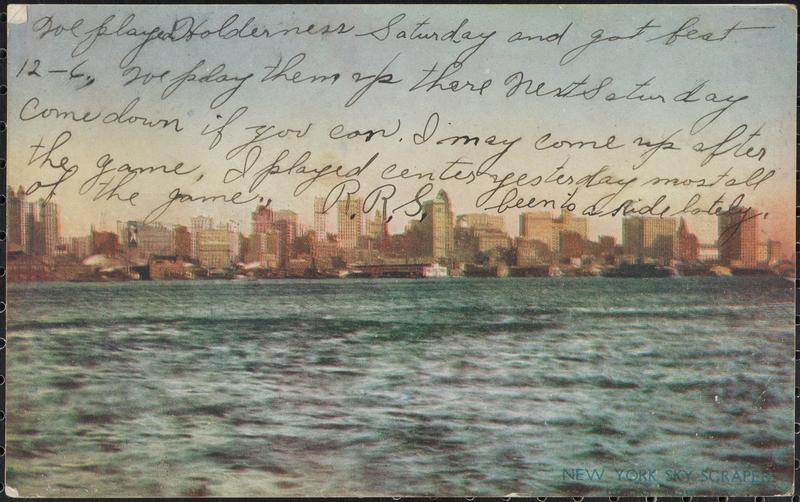 We played Holderness Saturday and got beat
12-6, We play them up there Next Saturday
Come down if you can. I may come up after
the game, I played center yesterday most all
of the game, R.R.S. been to a ride lately.
NEW YORK SKY SCRAPERS